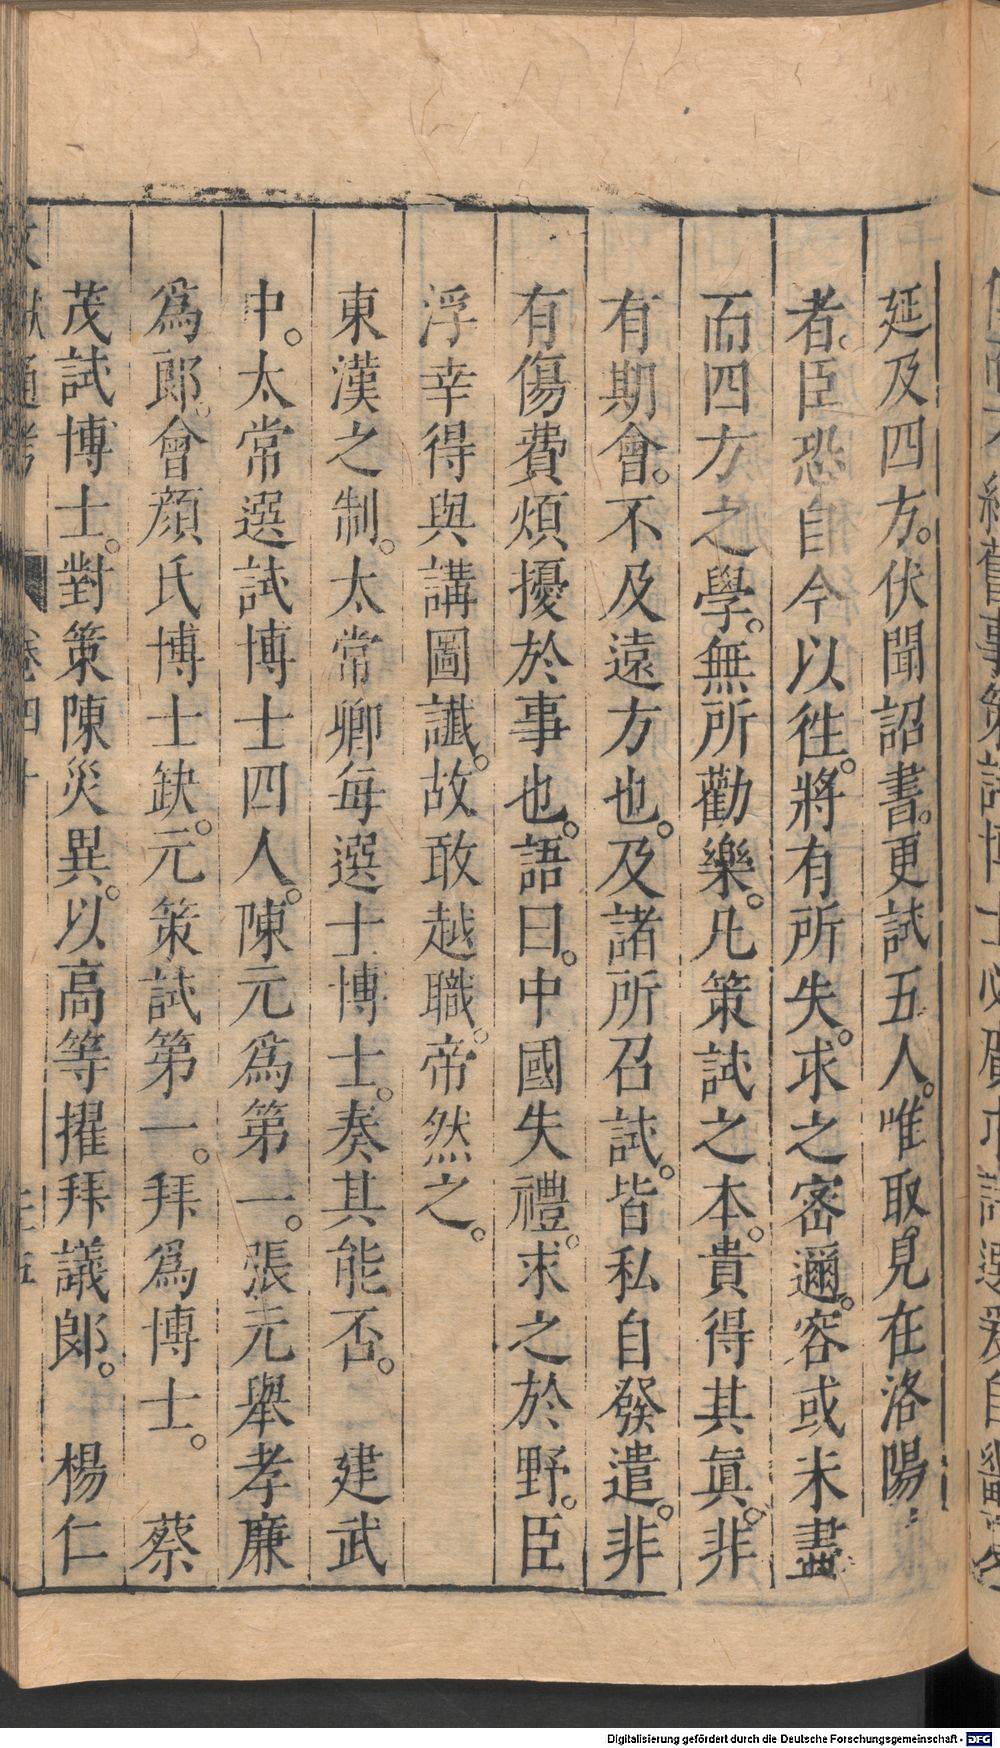 延及四方。伏聞詔書。更試五人。唯取見在洛陽
者。臣恐自今以徃。將有所失。求之密邇。容或未盡
而四方之學。無所勸樂。凡策試之本。貴得其眞。非
有期會。不及遠方也。及諸所召試。皆私自發遣。非
有傷費煩擾於事也。語曰。中國失禮。求之於野。臣
浮幸得與講圖讖。故敢越職。帝然之。
東漢之制。太常卿每選士博士。奏其能否。 建武
中。太常選試博士四人。陳元爲第一。張元舉孝廉
爲郎。會顔氏博士缺。元策試第一。拜爲博士。 蔡
茂試博士。對策陳災異。以高等擢拜議郎。 楊仁
文獻通考 卷四十
Digitalisierung gefördert durch die Deutsche Forschungsgemeinschaft - DFG